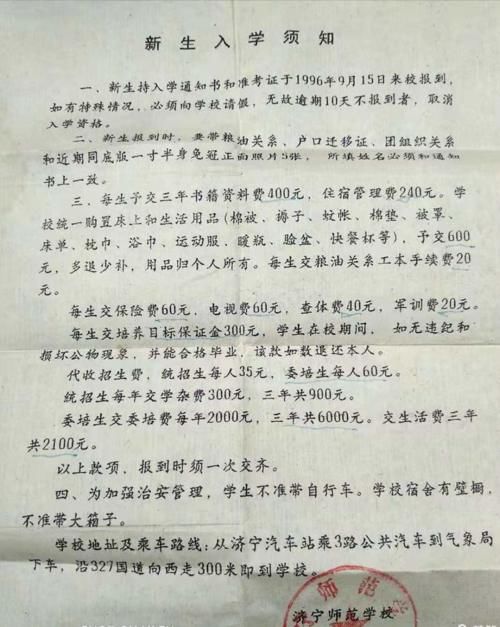 新生入学须知
一、新生持入学通知书和准考证于1996年9月15日来校报到,
如有特殊情况,必须向学校请假,无故逾期10天不报到者,取消
入学资格。
二、新生报到时,要带粮油关系、户口迁移证、团组织关系
和近期同底版一寸半身免冠正面照片5张,所填姓名必须和通知
书上一致。
三、每生予交三年书籍资料费400元,住宿管理费240元。学
校统一购置床上和生活用品(棉被、褥子、蚊帐、棉垫、被罩、
床单、枕巾、浴巾、运动服、暖瓶、脸盆、快餐杯等),予交600
元,多退少补,用品归个人所有。每生交粮油关系工本手续费20
元。
每生交保险费60元,电视费60元,查体费40元,军训费20元。
每生交培养目标保证金300元,学生在校期间,如无违纪和
损坏公物现象,并能合格毕业,该款如数退还本人。
代收招生费,统招生每人35元,委培生每人60元。
统招生每年交学杂费300元,三年共900元。
委培生交委培费每年2000元,三年共6000元。交生活费三年
共2100元。
以上款项,报到时须一次交齐。
四、为加强治安管理,学生不准带自行车。学校宿舍有壁橱,
不准带大箱子。
学校地址及乘车路线:从济宁汽车站乘3路公共汽车到气象局
下车,沿327国道向西走300米即到学校。
济宁师范学校